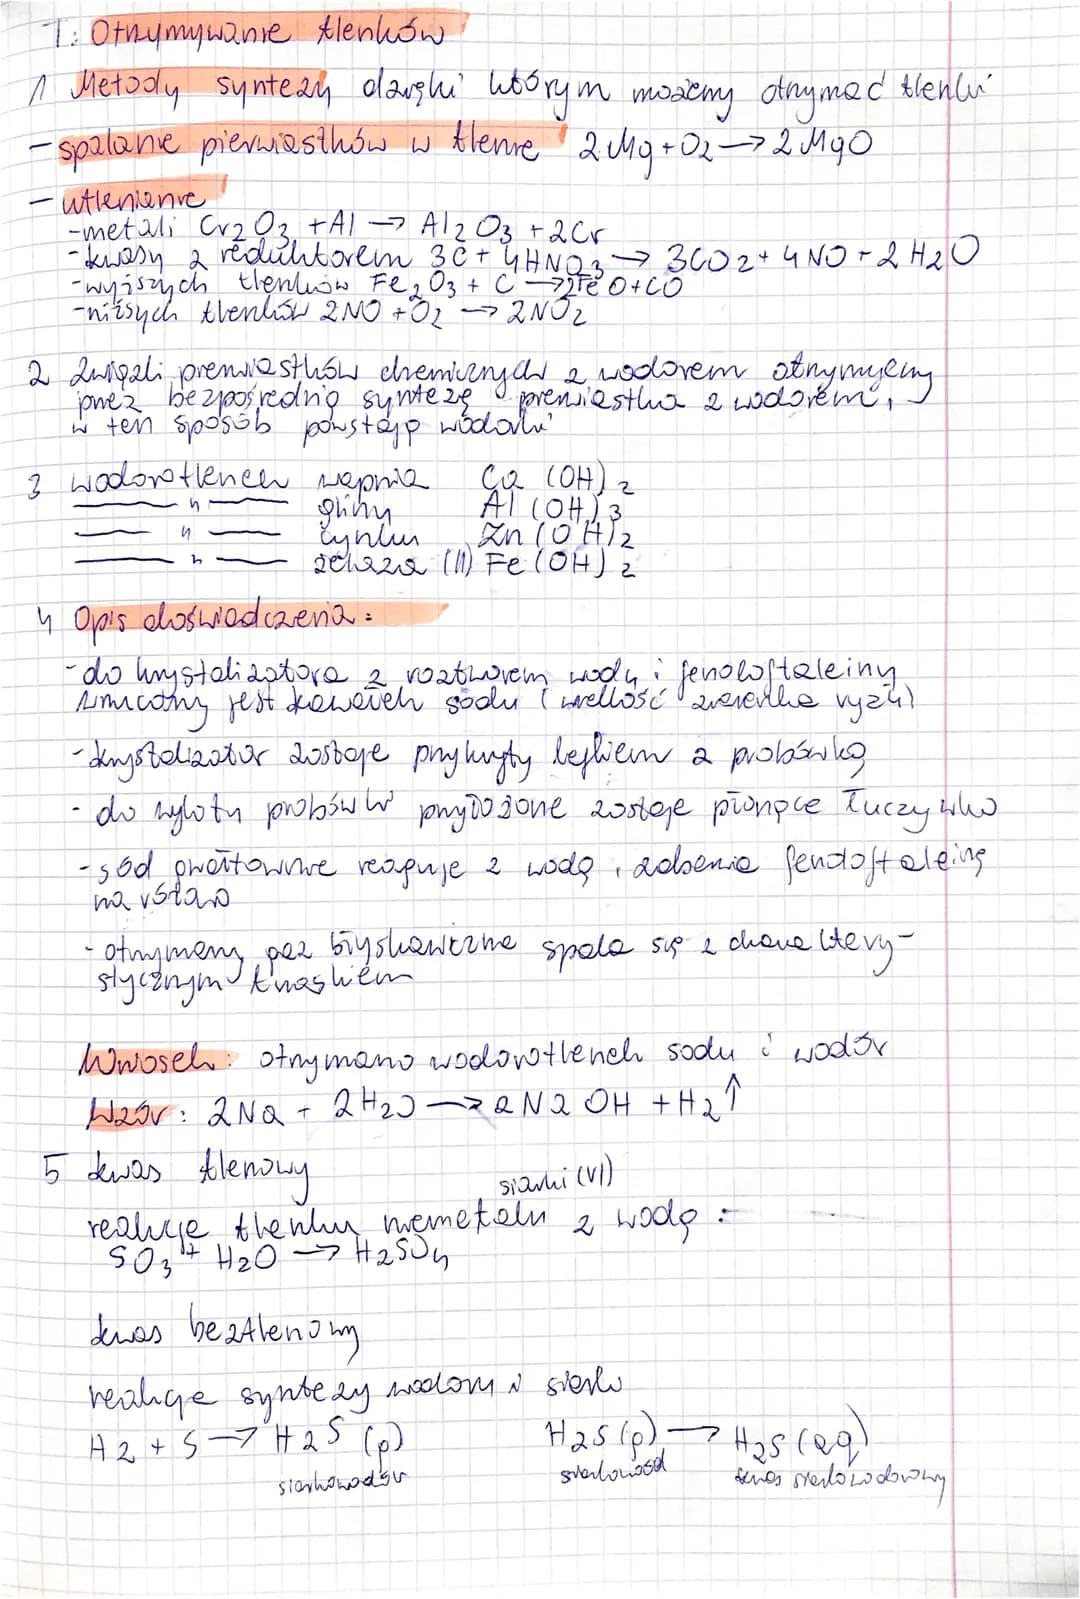 T: Otrzymywanie tlenków
1 Metody syntezy dzięki którym możemy otrzymać tlenki
- spalanie pierwiastków w tlenie 2Mg + O2 → 2MgO
- utlenianie
- metali Cr2O3 + Al → Al2O3 + 2Cr
- kwasy z reduktorem 3C + 4HNO3 → 3CO2 + 4NO + 2H2O
- wyższych tlenków Fe2O3 + C → 2FeO + CO
- niższych tlenków 2NO + O2 → 2NO2
2 Związki pierwiastków chemicznych z wodorem otrzymujemy
przez bezpośrednią syntezę pierwiastka z wodorem,
w ten sposób powstają wodorki
3 wodorotlenek wapnia Ca(OH)2
—— " —— gliny Al(OH)3
—— " —— cynku Zn(OH)2
—— " —— żelaza (II) Fe(OH)2
4 Opis doświadczenia:
- do krystalizatora z roztworem wody i fenoloftaleiny
wrzucony jest kawałek sodu (wielkość ziarenka ryżu)
- krystalizator zostaje przykryty lejkiem z probówką
- do wylotu probówki przyłożone zostaje płonące łuczywko
- sód gwałtownie reaguje z wodą, zabarwia fenoloftaleinę
na różowo
- otrzymany gaz błyskawicznie spala się z charaktery-
stycznym trzaskiem
Wniosek: otrzymano wodorotlenek sodu i wodór
Wzór: 2Na + 2H2O → 2NaOH + H2↑
5 kwas tlenowy
siarki (VI)
reakcje tlenku niemetalu z wodą :
SO3 + H2O → H2SO4
kwas beztlenowy
reakcje syntezy wodoru i siarki
H2 + S → H2S (p) H2S (p) → H2S (aq)
siarkowodór siarkowodór kwas siarkowodorowy